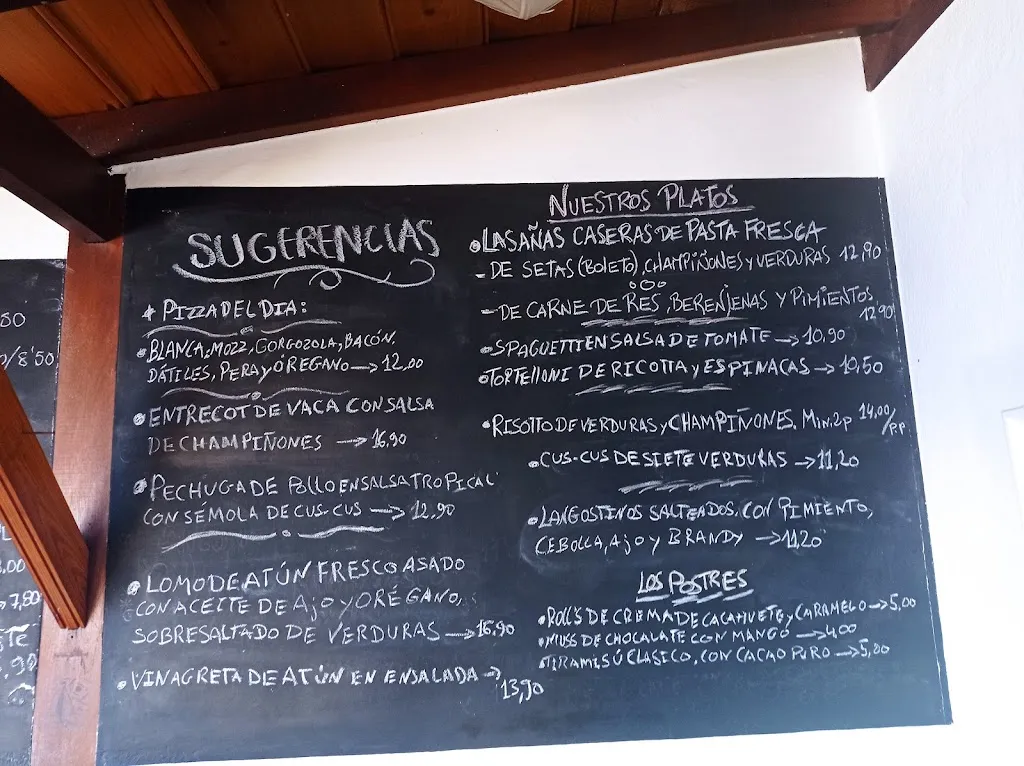 SUGERENCIAS
* PIZZA DEL DIA:
• BLANCA, MOZZ, GORGOZOLA, BACÓN,
DÁTILES, PERA Y OREGANO → 12,00
• ENTRECOT DE VACA CON SALSA
DE CHAMPIÑONES → 16,90
• PECHUGA DE POLLO EN SALSA TROPICAL
CON SÉMOLA DE CUS-CUS → 12,90
• LOMO DE ATÚN FRESCO ASADO
CON ACEITE DE AJO Y ORÉGANO,
SOBRESALTADO DE VERDURAS → 16,90
• VINAGRETA DE ATÚN EN ENSALADA →
13,90
NUESTROS PLATOS
• LASAÑAS CASERAS DE PASTA FRESCA
- DE SETAS (BOLETO), CHAMPIÑONES Y VERDURAS 12,90
- DE CARNE DE RES, BERENJENAS Y PIMIENTOS
12,90
• SPAGUETTI EN SALSA DE TOMATE → 10,90
• TORTELLONI DE RICOTTA Y ESPINACAS → 10,50
• RISOTTO DE VERDURAS Y CHAMPIÑONES. MIN. 2P 14,00
/P.P
• CUS-CUS DE SIETE VERDURAS → 11,20
• LANGOSTINOS SALTEADOS, CON PIMIENTO,
CEBOLLA, AJO Y BRANDY → 11,20
LOS POSTRES
• ROLL'S DE CREMA DE CACAHUETE Y CARAMELO → 5,00
• MUSS DE CHOCALATE CON MANGO → 4,00
• TIRAMISÚ CLASICO, CON CACAO PURO → 5,80
50
/8'50
,00
→ 7,80
TE
,90